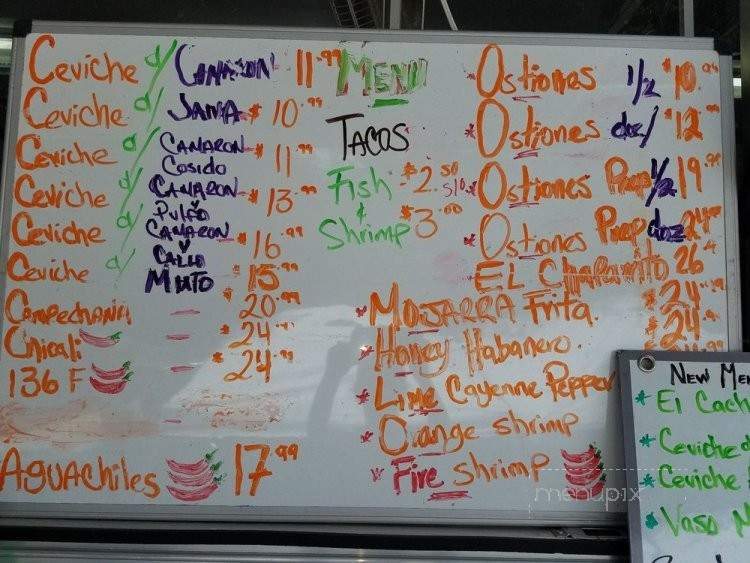 Ceviche d/ CAMARON 11.99
Ceviche d/ JAIVA $10.99
Ceviche d/ CAMARON COSIDO $11.99
Ceviche d/ CAMARON PULPO $13.99
Ceviche d/ CAMARON Y CALLO $16.99
Ceviche d/ MIXTO $15.99
Campechana - $20.99
Chicali - $24.99
136 F - $24.99
AGUAChiles 17.99
MENU
TACOS
Fish $2.50
&
Shrimp $3.00
* Ostiones 1/2 $10.99
* Ostiones doz/ $12.99
* Ostiones Prep 1/2 19.99
* Ostiones Prep doz 24.99
* EL Chaparrito 26
* MOJARRA Frita. $24
* Honey Habanero. $24.
* Lime Cayenne Pepper
* Orange shrimp
* Fire shrimp
menupix
NEW MEN
* El Cach
* Ceviche d
* Ceviche
* Vaso M